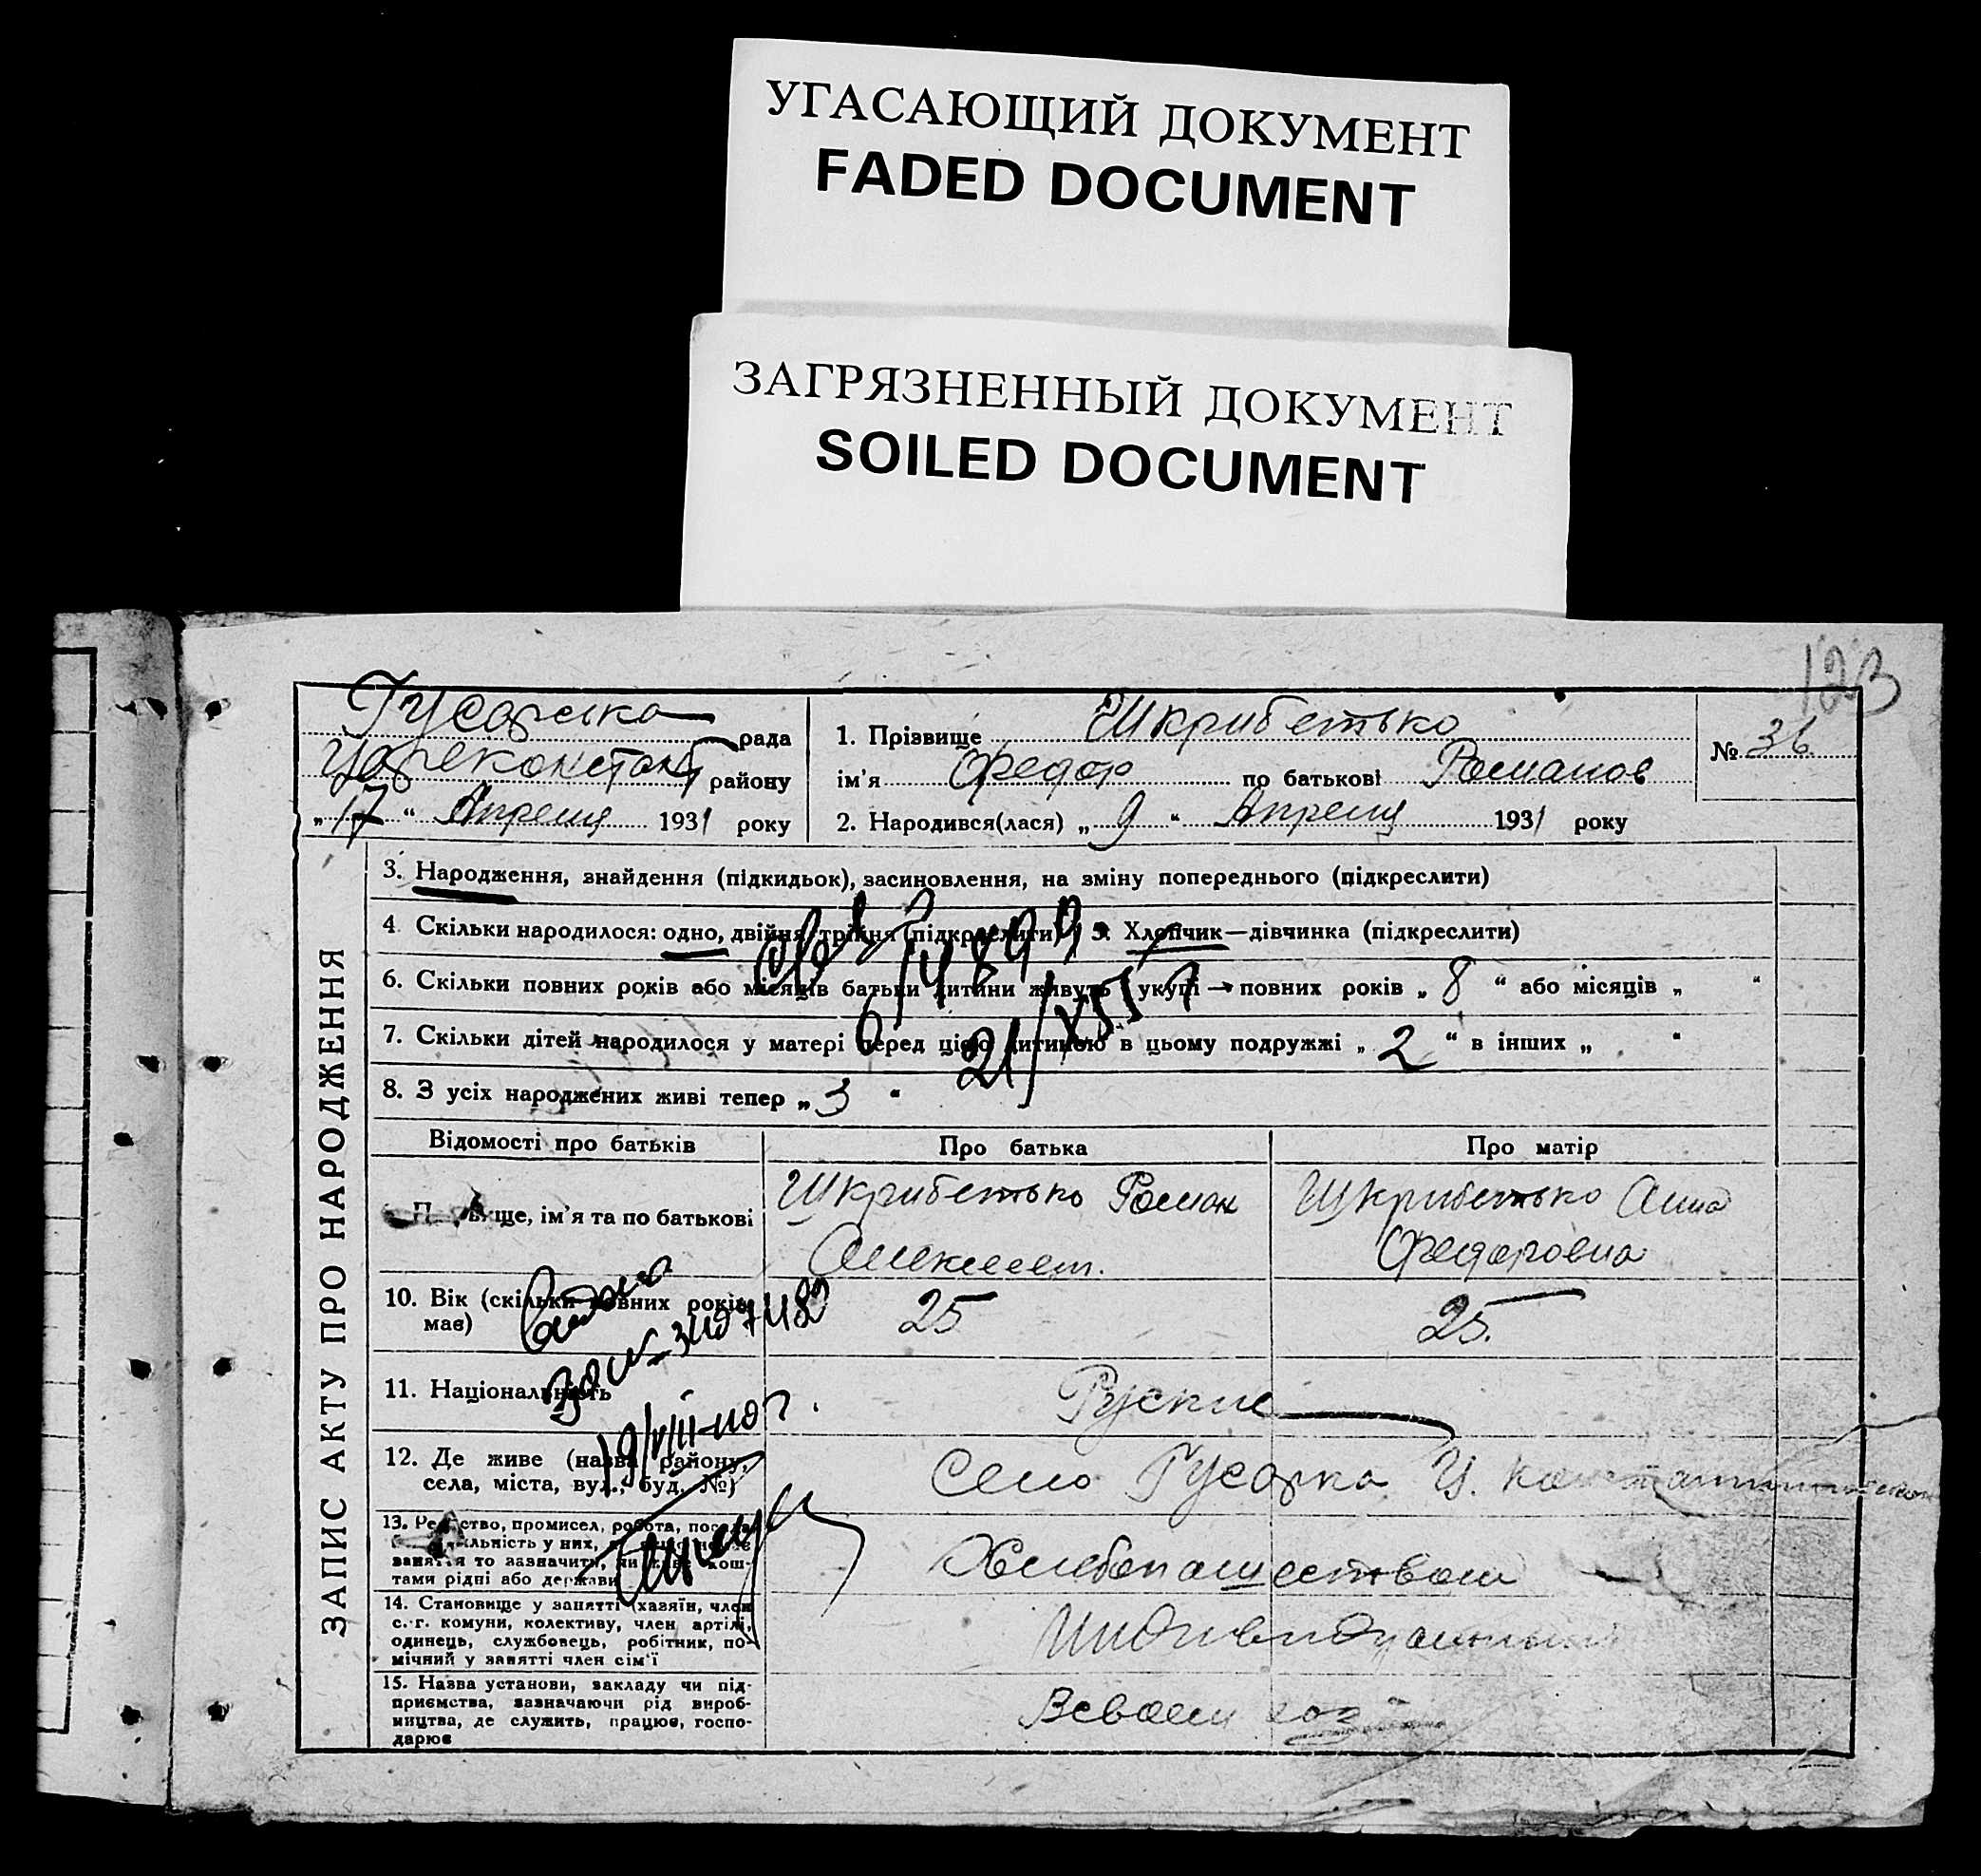 УГАСАЮЩИЙ ДОКУМЕНТ
FADED DOCUMENT
ЗАГРЯЗНЕННЫЙ ДОКУМЕНТ
SOILED DOCUMENT
123
Гусарська рада
Цареконстант району
„ 17 “ Апреля 1931 року
1. Прізвище Шкрибетько
ім'я Федор по батькові Романов
2. Народився(лася) „ 9 “ Апреля 1931 року
№ 36
ЗАПИС АКТУ ПРО НАРОДЖЕННЯ
3. Народження, знайдення (підкидьок), засиновлення, на зміну попереднього (підкреслити)
4 Скільки народилося: одно, двійня, трійня (підкреслити) 5. Хлопчик—дівчинка (підкреслити)
6. Скільки повних років або місяців батьки дитини живуть укупі → повних років „ 8 “ або місяців „ “
7. Скільки дітей народилося у матері перед цією дитиною в цьому подружжі „ 2 “ в інших „ “
8. З усіх народжених живі тепер „ 3 “
21/XII
Відомості про батьків Про батька Про матір
ще, ім'я та по батькові
Шкрибетько Роман
Алексеев.
Шкрибетько Анна
Федоровна
10. Вік (скільки повних років
має)
25 25.
11. Національність Руские
19/VIII-40 г.
12. Де живе (назва району,
села, міста, вул., буд. №)
Село Гусарка Ц. Константиновск
13. Ремество, промисел, робота, посада
льність у них,
заняття то зазначити, чи живе кош-
тами рідні або держави
Хлебопашеством
14. Становище у занятті (хазяїн, член
с.-г. комуни, колективу, член артілі,
одинець, службовець, робітник, по-
мічний у занятті член сім'ї
Индивидуальный
15. Назва установи, закладу чи під-
приємства, зазначаючи рід вироб-
ництва, де служить, працює, госпо-
дарює